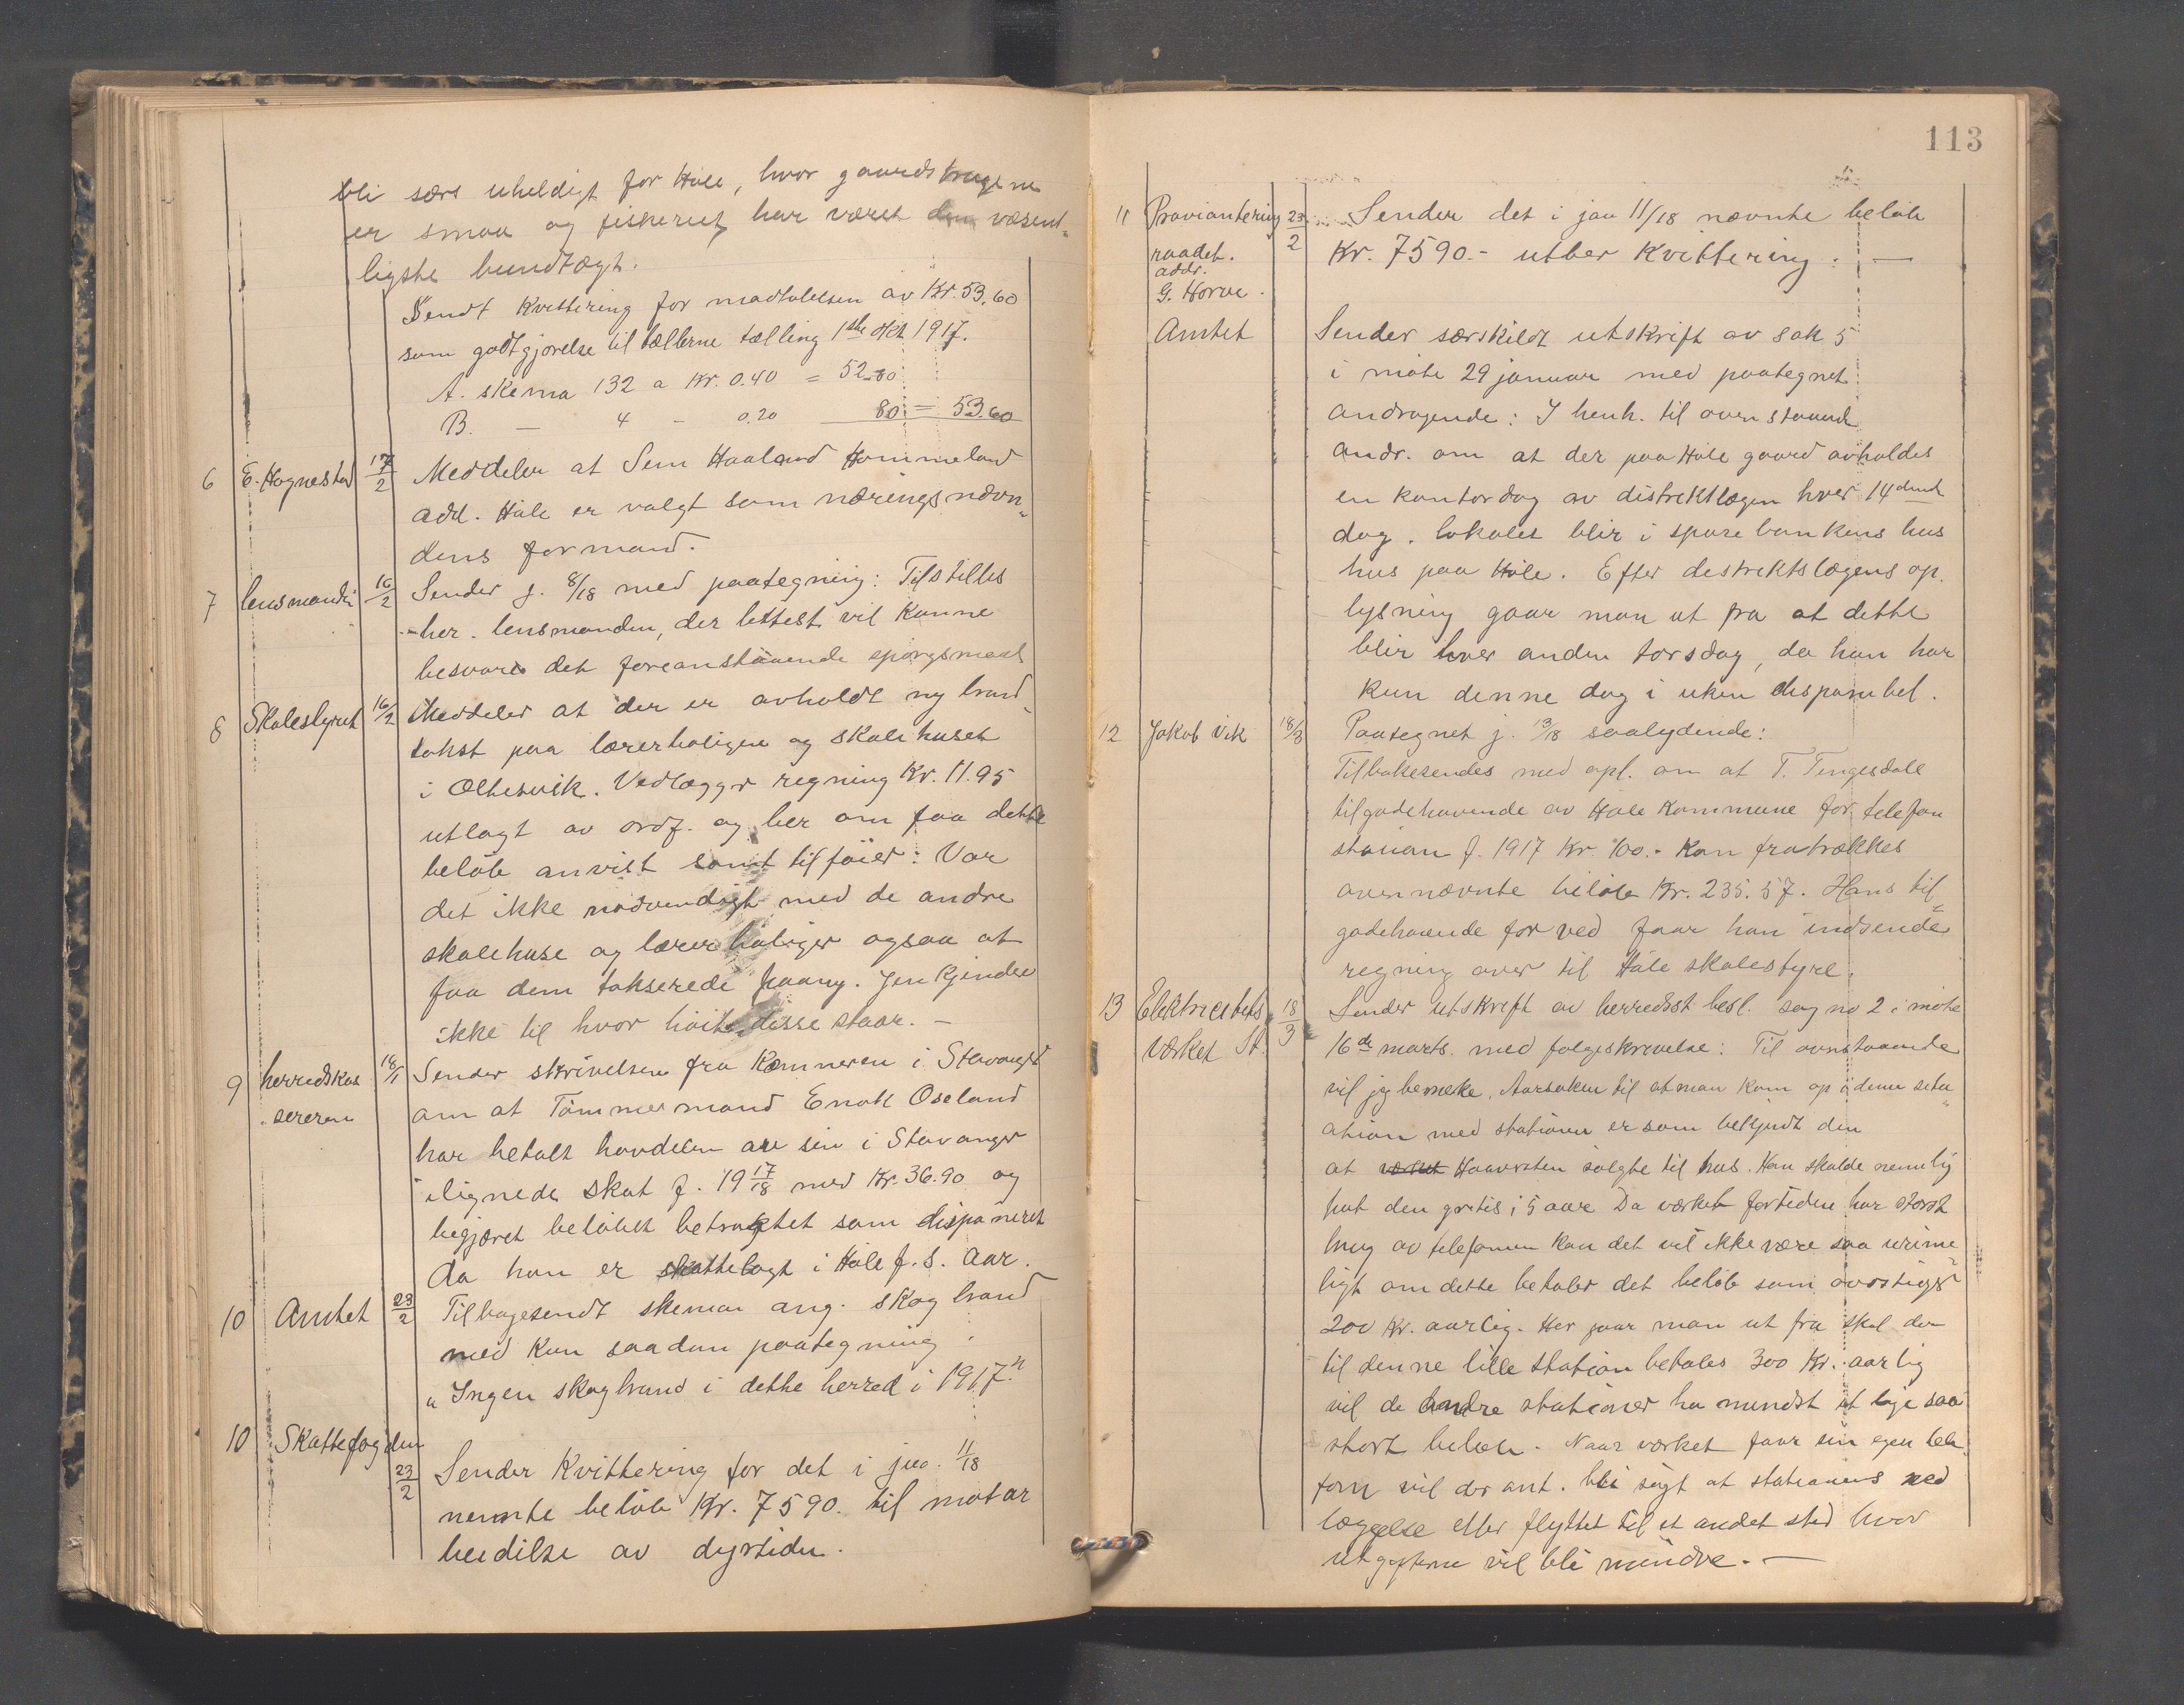 bli særs uheldigt for Hole, hvor gaardsbrugene
er smaa og fiskeriet har været den væsent-
ligste
Sendt Kvittering for modtalelsen av Kr. 53.60
som godtgjørelse til tællerne tælling 1ste Okt 1917.
A. skema 132 a Kr. 0.40 = 52.80
B. — 4 - 0.20 80 = 53.60
6 E. Hognestad 17/2 Meddeler at Sem Haaland Hommeland
add. Håle er valgt som næringsnævn-
dens formand.
7 lensmanden 16/2 Sender j. 8/18 med paategning: Tilstilles
her. lensmanden, der lettest vil kunne
besvare det foreanstaaende spørgsmaal
8 Skolestyret 16/2 Meddeler at der er avholdt ny brand
takst paa lærerboligen og skolehuset
i Oltesvik. Vedlægger regning Kr. 11.95
utlagt av ordf. og ber om faa dette
beløb anvist samt tilføier: Var
det ikke nødvendigt med de andre
skolehuse og lærerboliger ogsaa at
faa dem takserede paany. Jeg kjender
ikke til hvor høit disse staar. —
9 herredskas 18/1 Sender skrivelsen fra Kæmneren i Stavanger
sereren om at Tømmermand Enok Oseland
har betalt havdelen av sin i Stavanger
ilignede skat f. 19 17/18 med Kr. 36.90 og
begjæret beløbet betragtet som disponeret
da han er skattelagt i Hole f. s. aar.
10 Amtet 23/2 Tilbagesendt skemar ang. skogbrand
med kun saadan paategning
„Ingen skogbrand i dette herred i 1917."
10 Skattefogden
23/2 Sender Kvittering for det i jno. 11/18
nevnte beløb Kr. 7590. til motar
beidelse av dyrtiden.
113
11 Proviantering 23/2 Sender det i jno 11/18 nævnte beløb
raadet. Kr. 7590.- utber Kvittering. —
addr.
G. Horve.
Amtet Sender særskildt utskrift av sak 5
i møte 29 januar med paategnet
andragende: I henh. til ovenstaaende
andr. om at der paa Hole gaard avholdes
en kontordag av distriktslægen hver 14dende
dag. lokalet blir i sparebankens hus
hus paa Hole. Efter destriktslægens op-
lysning gaar man ut fra at dette
blir hver anden torsdag, da han har
kun denne dag i uken disponibel.
12 Jakob Vik 18/3 Paategnet j. 13/18 saalydende:
Tilbakesendes med opl. om at T. Tengesdall
tilgodehavende av Hole Kommune for telefon
station f. 1917 Kr. 100.- kan fratrækkes
ovennævnte beløb Kr. 235.57. Hans til-
godehavende for ved faar han indsende
regning over til Hole skolestyre.
13 Elektricitets 18/3 Sender utskrift av herredsst besl. sag no 2 i møte
værket St. 16de marts med følgeskrivelse: Til ovnstaaende
vil jeg bemerke. Aarsaken til at man kom op i denne situ-
ation med stationen er som bekjendt den
at Haavarsten solgte til hus. Han skulde nemlig
hat den gratis i 5 aar Da værket fortiden har størst
brug av telefonen kan det vel ikke være saa urime-
ligt om dette betaler det beløb som overstiger
200 Kr. aarlig. Her gaar man ut fra skal der
til denne lille station betales 300 Kr. aarlig
vil de andre stationer ha mindst et lige saa
stort beløb. Naar værket faar sin egen tele-
fon vil der ant. bli søgt at stationens ned
læggelse eller flyttet til et andet sted hvor
utgifterne vil bli mindre. —